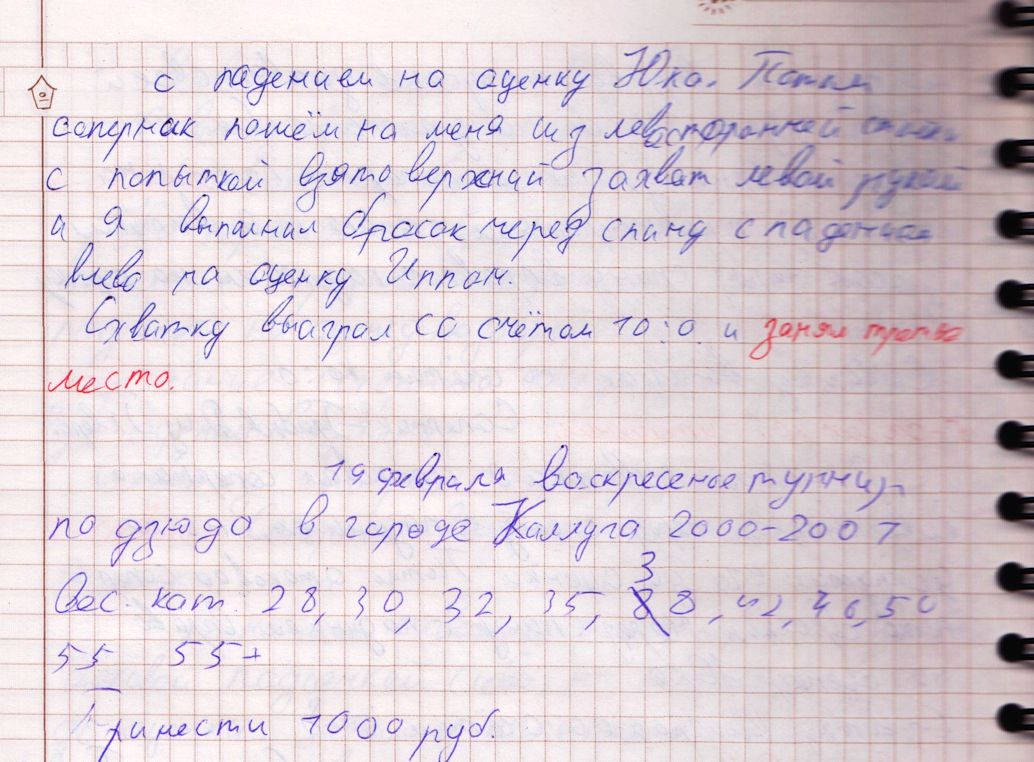 с падением на оценку Юко. Потом
соперник пошём на меня из левосторанней стойки
с попыткой взято верхний захват левой рукой
а я выполнил бросок через спину с падением
влево на оценку Иппон.
Схватку выаграл со счётом 10:0. и занял третье
место.
19 февраля васкресенье турнир
по дзюдо в городе Каллуга 2000-2001
Вес. кат. 28, 30, 32, 35, 38, 42, 46, 50
55 55+
Принести 1000 руб.